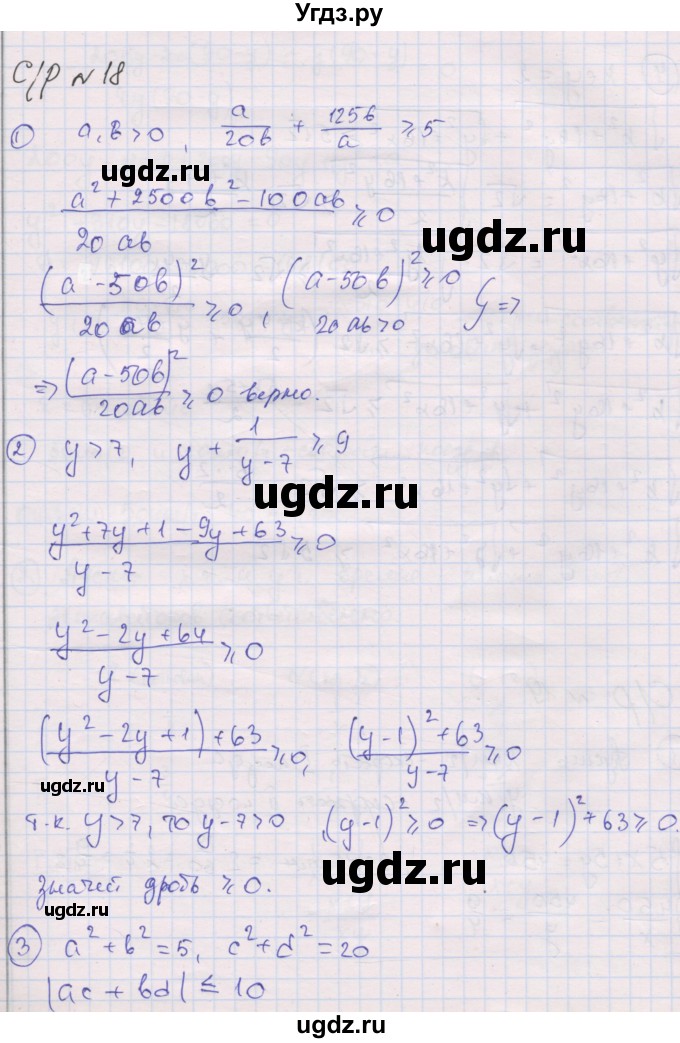 Угдз.ру
С/Р №18
① a, b > 0, a/20b + 125b/a ≥ 5
ugdz.ru
(a² + 2500b² - 100ab)/20ab ≥ 0
ugdz.ru
(a - 50b)²/20ab ≥ 0, (a - 50b)² ≥ 0
20ab > 0 } =>
=> (a - 50b)²/20ab ≥ 0 верно.
② y > 7, y + 1/(y - 7) ≥ 9
ugdz.ru
ugdz.ru
(y² + 7y + 1 - 9y + 63)/(y - 7) ≥ 0
(y² - 2y + 64)/(y - 7) ≥ 0
((y² - 2y + 1) + 63)/(y - 7) ≥ 0, ((y - 1)² + 63)/(y - 7) ≥ 0
ugdz.ru
т.к. y > 7, то y - 7 > 0, (y - 1)² ≥ 0 => (y - 1)² + 63 ≥ 0.
ugdz.ru
значит дробь ≥ 0.
ugdz.ru
③ a² + b² = 5, c² + d² = 20
|ac + bd| ≤ 10
ugdz.ru